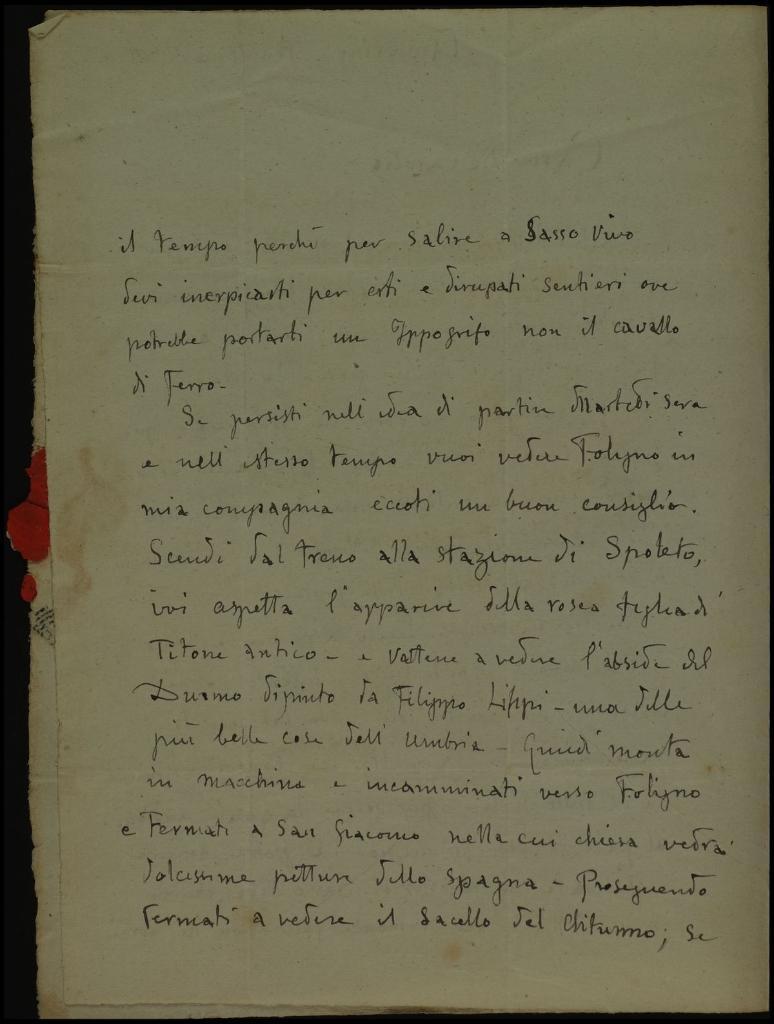 il tempo perchè per salire a Sasso Vivo
devi inerpicarti per erti e dirupati sentieri ove
potrebbe portarti un Ippogrifo non il cavallo
di Ferro -
Se persisti nell'idea di partire Martedì sera
e nell'istesso tempo vuoi vedere Foligno in
mia compagnia eccoti un buon consiglio.
Scendi dal treno alla stazione di Spoleto,
ivi aspetta l'apparire della rosea figlia di
Titone antico - e vattene a vedere l'abside del
Duomo dipinto da Filippo Lippi - una delle
più belle cose dell'Umbria - Quindi monta
in macchina e incamminati verso Foligno
e Fermati a San Giacomo nella cui chiesa vedrai
dolcissime pitture dello Spagna - Proseguendo
fermati a vedere il Sacello del Clitunno; se